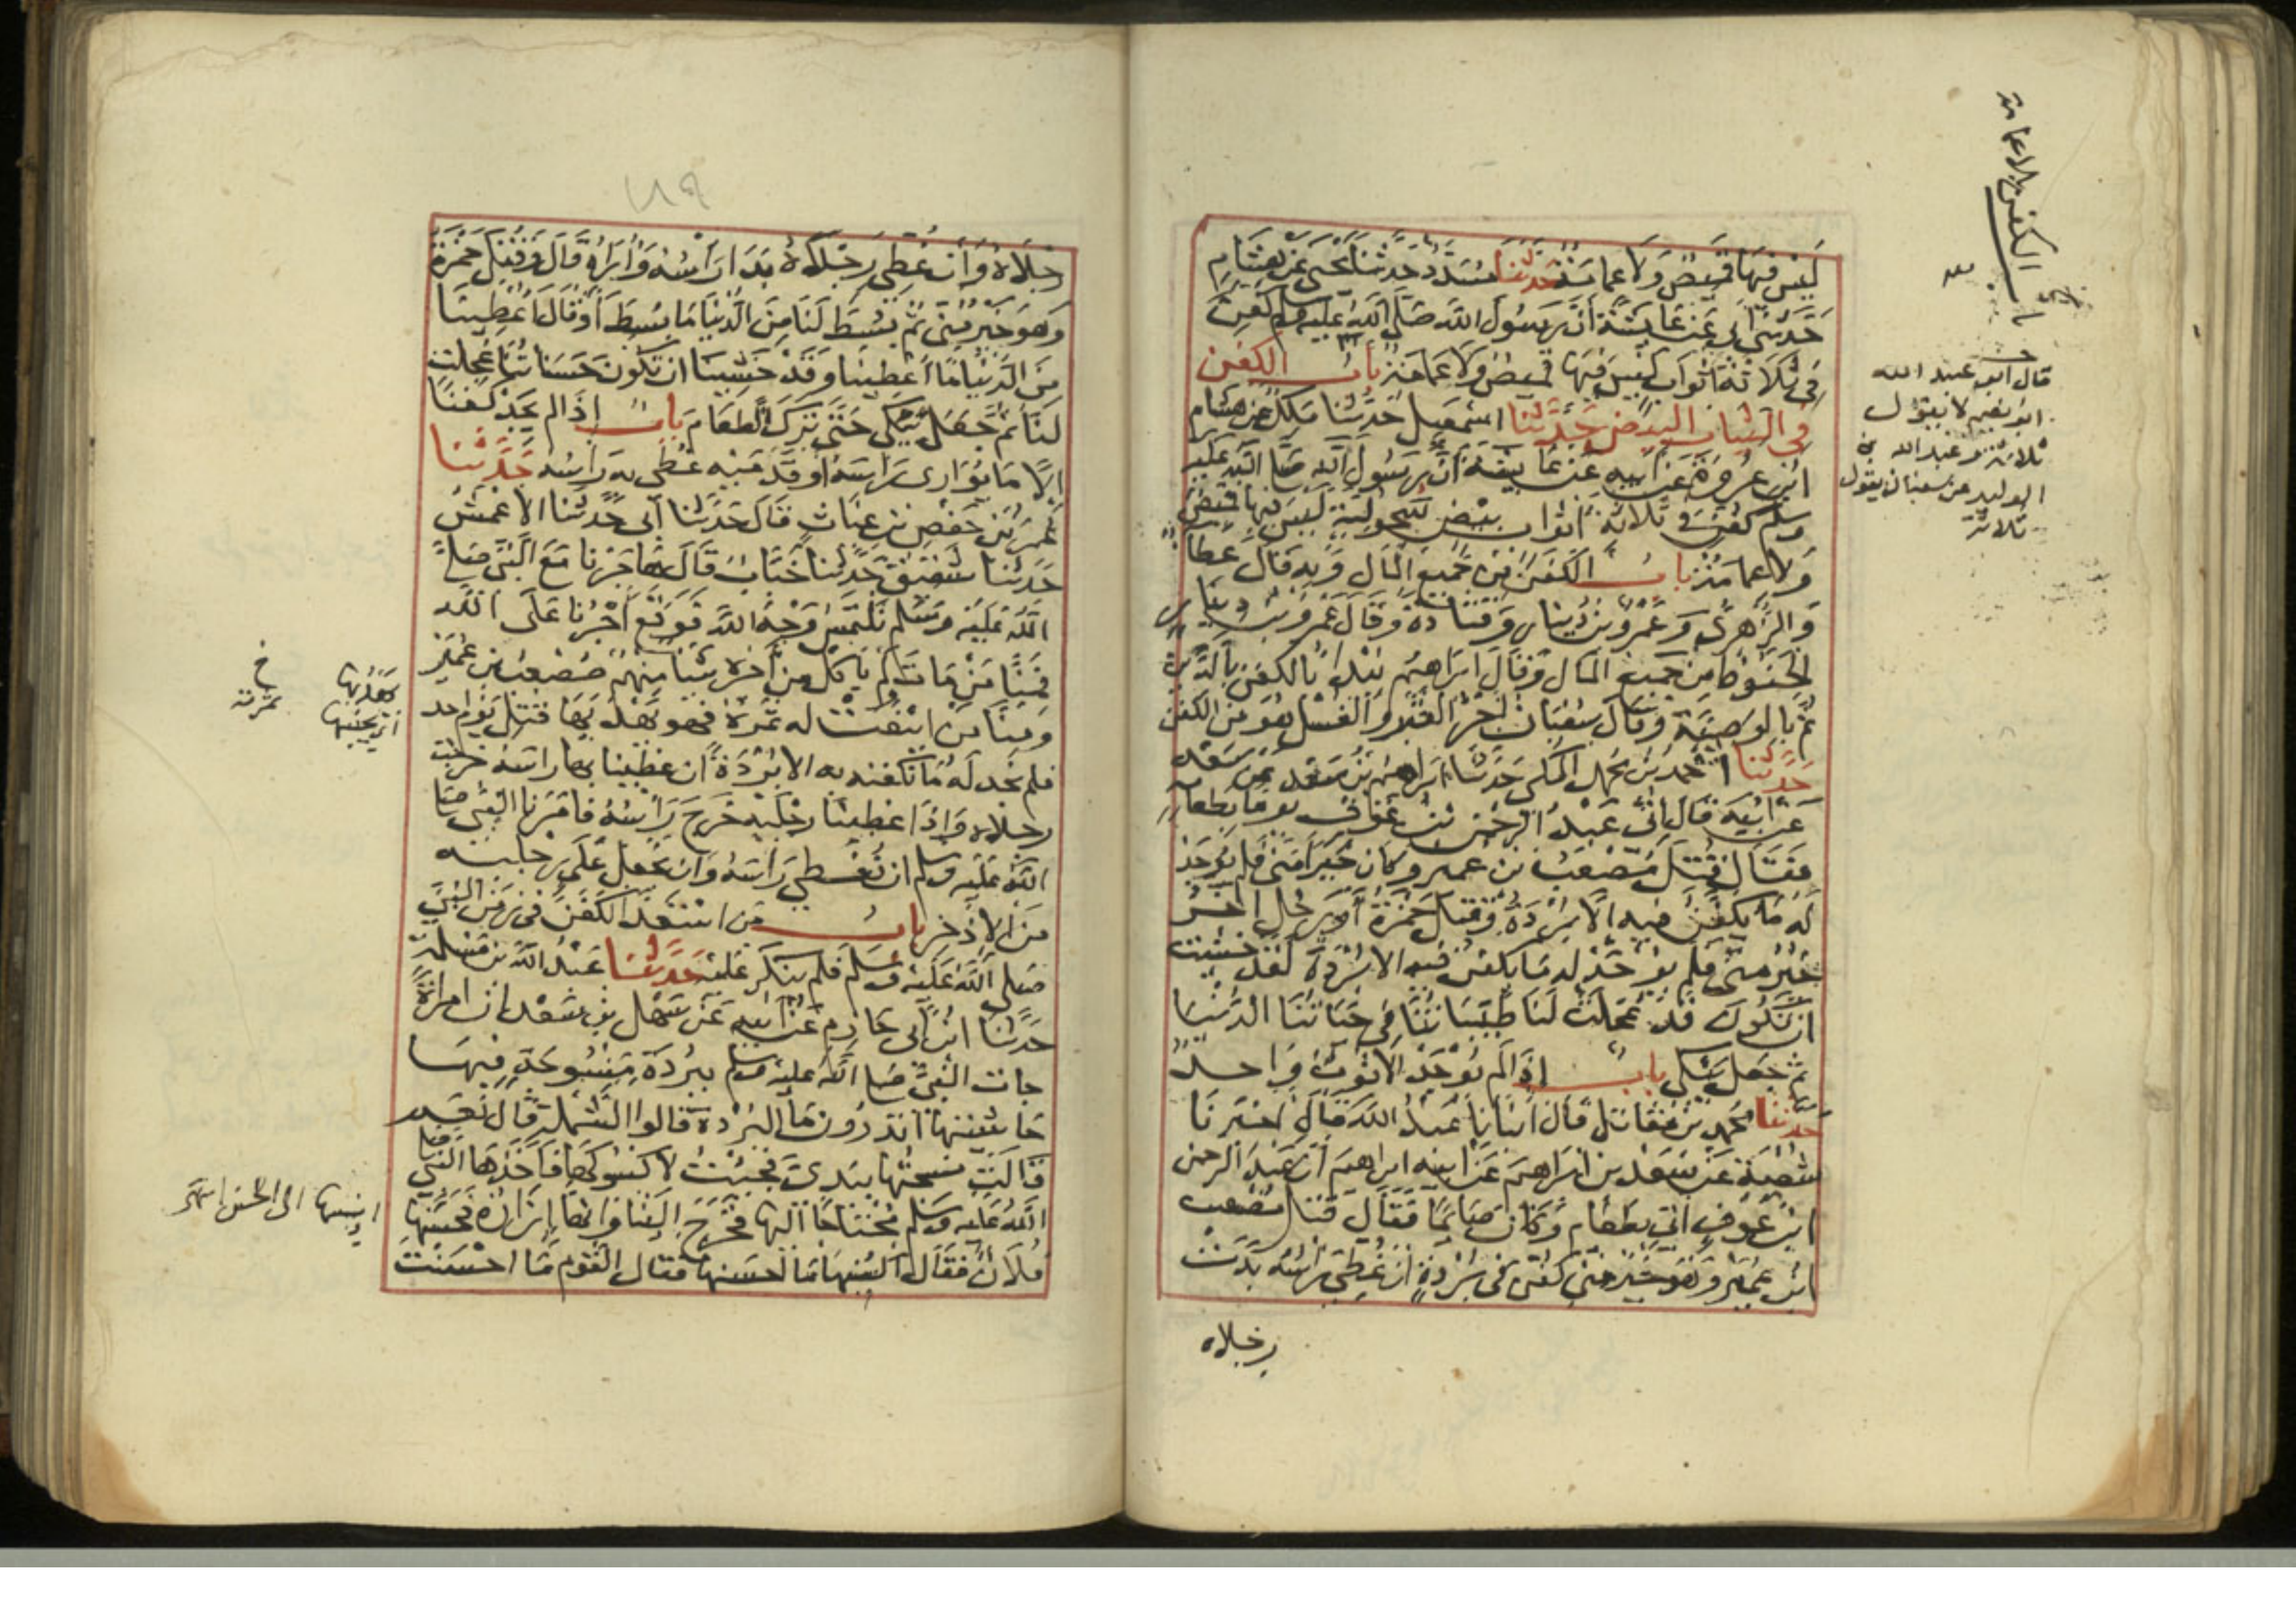 ليس فيها قميص ولا عمامة حدثنا مسدد حدثنا يحيى عن هشام
حدثني ابي عن عايشة ان رسول الله صلى الله عليه وسلم كفن
في ثلاثة اثواب ليس فيها قميص ولا عمامة باب الكفن
في الثياب البيض حدثنا اسمعيل حدثنا ملك عن هشام
ابن عروة عن ابيه عن عايشة ان رسول الله صلى الله عليه
وسلم كفن في ثلاثة اثواب بيض سحولية ليس فيها قميص
ولا عمامة باب الكفن من جميع المال وبه قال عطا
والزهري وعمرو بن دينار وقتادة وقال عمرو بن دينار
الحنوط من جميع المال وقال ابراهيم يبدا بالكفن بالدين
ثم بالوصية وقال سفيان اجر القبر والغسل هو من الكفن
حدثنا احمد بن محمد المكي حدثنا ابراهيم بن سعد عن سعد
عن ابيه قال اتي عبد الرحمن بن عوف يوما بطعامه
فقال قتل مصعب بن عمير وكان خيرا مني فلم يوجد
له ما يكفن فيه الا بردة وقتل حمزة او رجل اخر
خير مني فلم يوجد له ما يكفن فيه الا بردة لقد خشيت
ان تكون قد عجلت لنا طيباتنا في حياتنا الدنيا
ثم جعل يبكي باب اذا لم يوجد الا ثوب واحد
حدثنا محمد بن مقاتل قال انبانا عبد الله قال اخبرنا
شعبة عن سعد بن ابراهيم عن ابيه ابراهيم ان عبد الرحمن
ابن عوف اتي بطعام وكان صايما فقال قتل مصعب
ابن عمير وهو خير مني كفن في بردة ان غطي راسه بدت
رجلاه
باب الكفن بلا عمامة
قال ابو عبد الله
ابو نعيم لا يقول
ثلاثة وعبد الله بن
الوليد عن سفيان يقول
ثلاثة
١٨٩
رجلاه وان غطي رجلاه بدا راسه واراه قال وقتل حمزة
وهو خير مني ثم بسط لنا من الدنيا ما بسط او قال اعطينا
من الدنيا ما اعطينا وقد خشينا ان تكون حسناتنا عجلت
لنا ثم جعل يبكي حتى ترك الطعام باب اذا لم يجد كفنا
الا ما يواري راسه او قدميه غطي به راسه حدثنا
عمر بن حفص بن غياث قال حدثنا ابي حدثنا الاعمش
حدثنا شقيق حدثنا خباب قال هاجرنا مع النبي صلى
الله عليه وسلم نلتمس وجه الله فوقع اجرنا على الله
فمنا من مات لم ياكل من اجره شيئا منهم مصعب بن عمير
ومنا من اينعت له ثمرة فهو يهدبها قتل يوم احد
فلم نجد له ما نكفنه به الا بردة ان غطينا بها راسه خرجت
رجلاه واذا غطينا رجليه خرج راسه فامرنا النبي صلى
الله عليه وسلم ان نغطي راسه وان نجعل على رجليه
من الاذخر باب من استعد الكفن في زمن النبي
صلى الله عليه وسلم فلم ينكر عليه حدثنا عبد الله بن مسلمة
حدثنا ابن ابي حازم عن ابيه عن سهل بن سعد ان امراة
جات النبي صلى الله عليه وسلم ببردة منسوجة فيها
حاشيتها اتدرون ما البردة قالوا الشملة قال نعم
قالت نسجتها بيدي فجئت لاكسوكها فاخذها النبي صلى
الله عليه وسلم محتاجا اليها فخرج الينا وانها ازاره فحسنها
فلان فقال اكسنيها ما احسنها فقال القوم ما احسنت
يهدبها
اي يجنيها
خ
ثمرته